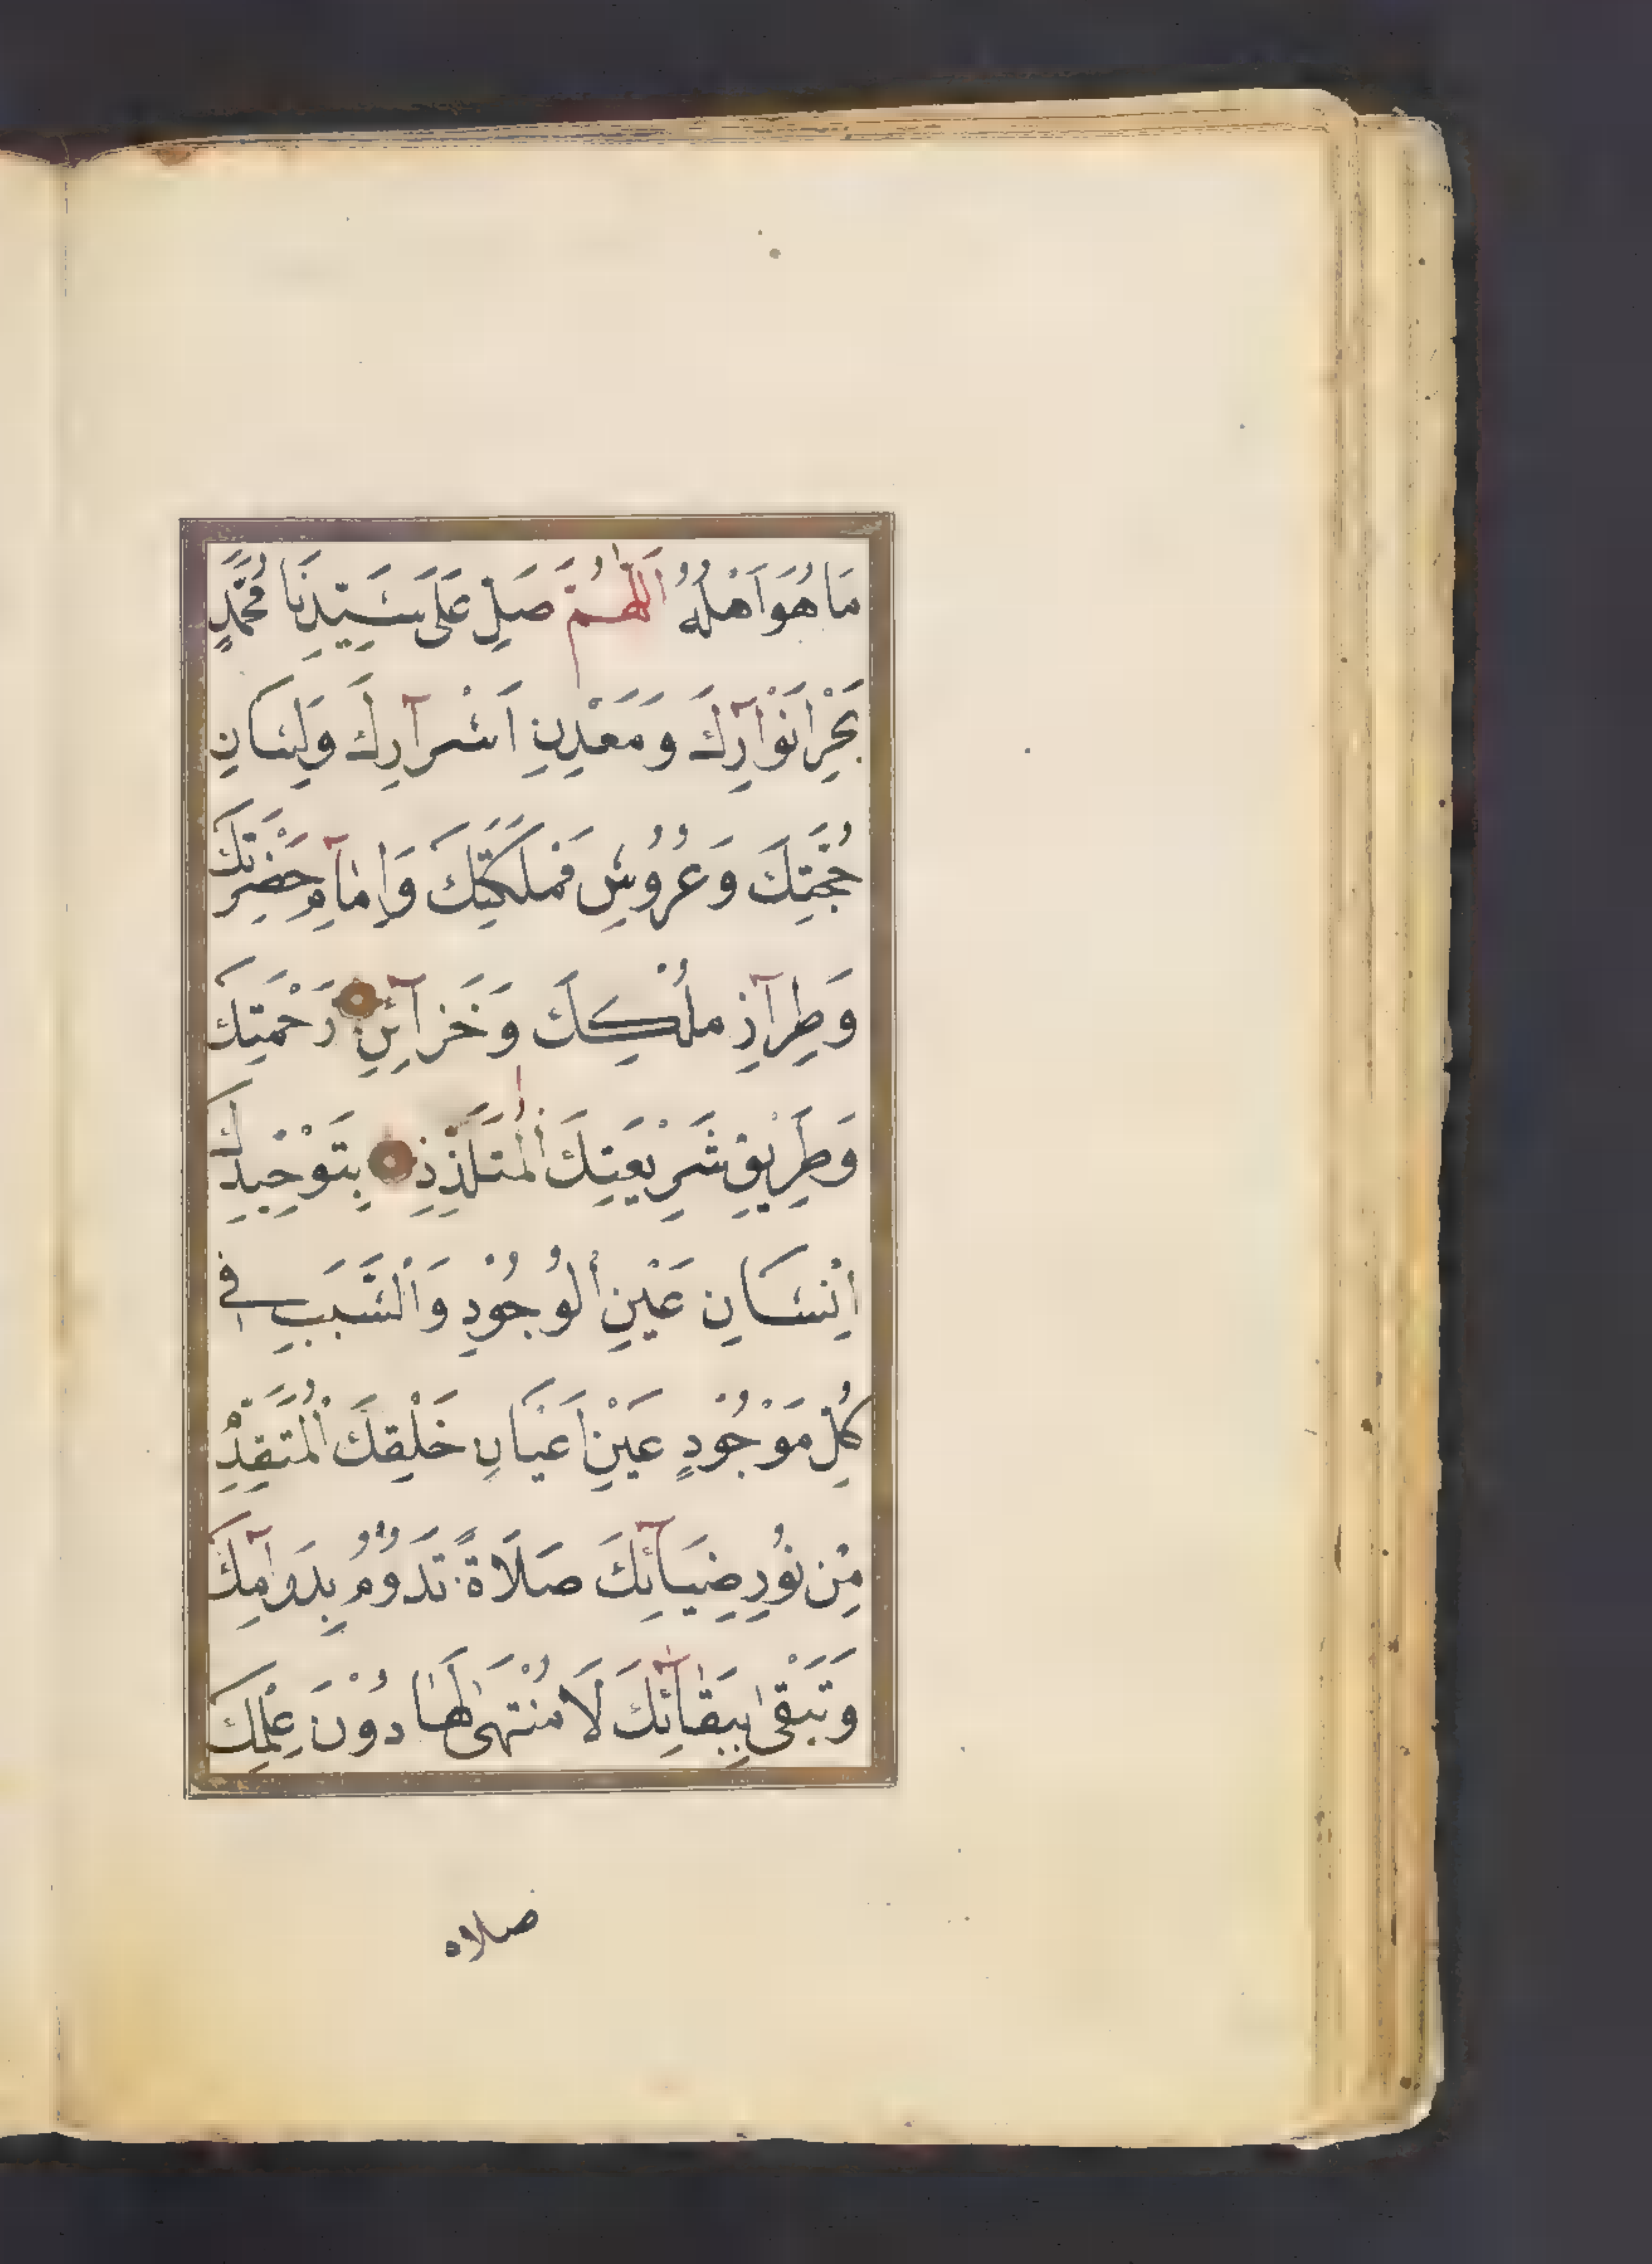 مَا هُوَ اَهْلُهُ اَللّٰهُمَّ صَلِّ عَلَى سَيِّدِنَا مُحَمَّدٍ
بَحْرِ اَنْوَآرِكَ وَمَعْدِنِ اَسْرَآرِكَ وَلِسَانِ
حُجَّتِكَ وَعُرُوسِ مَمْلَكَتِكَ وَاِمَآمِ حَضْرَتِكَ
وَطِرَآزِ مُلْكِكَ وَخَزَآئِنِ رَحْمَتِكَ
وَطَرِيْقِ شَرِيْعَتِكَ الْمُتَلَذِّذِ بِتَوْحِيْدِكَ
اِنْسَانِ عَيْنِ الْوُجُوْدِ وَالسَّبَبِ فِي
كُلِّ مَوْجُوْدٍ عَيْنِ اَعْيَانِ خَلْقِكَ الْمُتَقَدِّمِ
مِنْ نُوْرِ ضِيَآئِكَ صَلَاةً تَدُوْمُ بِدَوَامِكَ
وَتَبْقٰى بِبَقَآئِكَ لَا مُنْتَهٰى لَهَا دُوْنَ عِلْمِكَ
صلاه